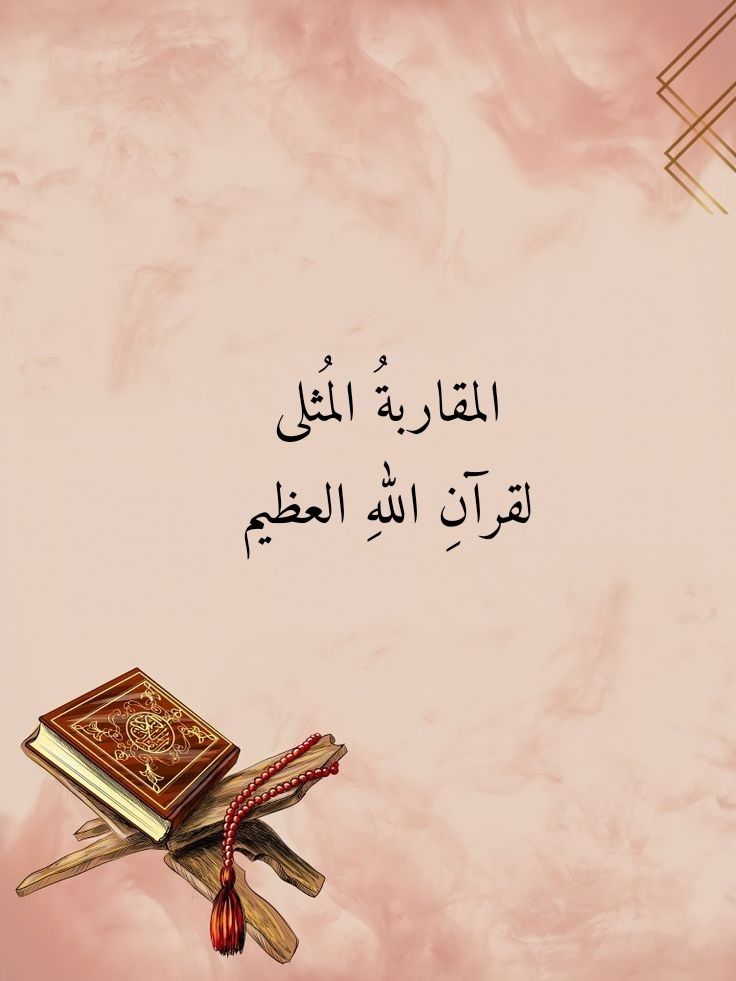 المقاربةُ المُثلى
لقرآنِ اللهِ العظيم